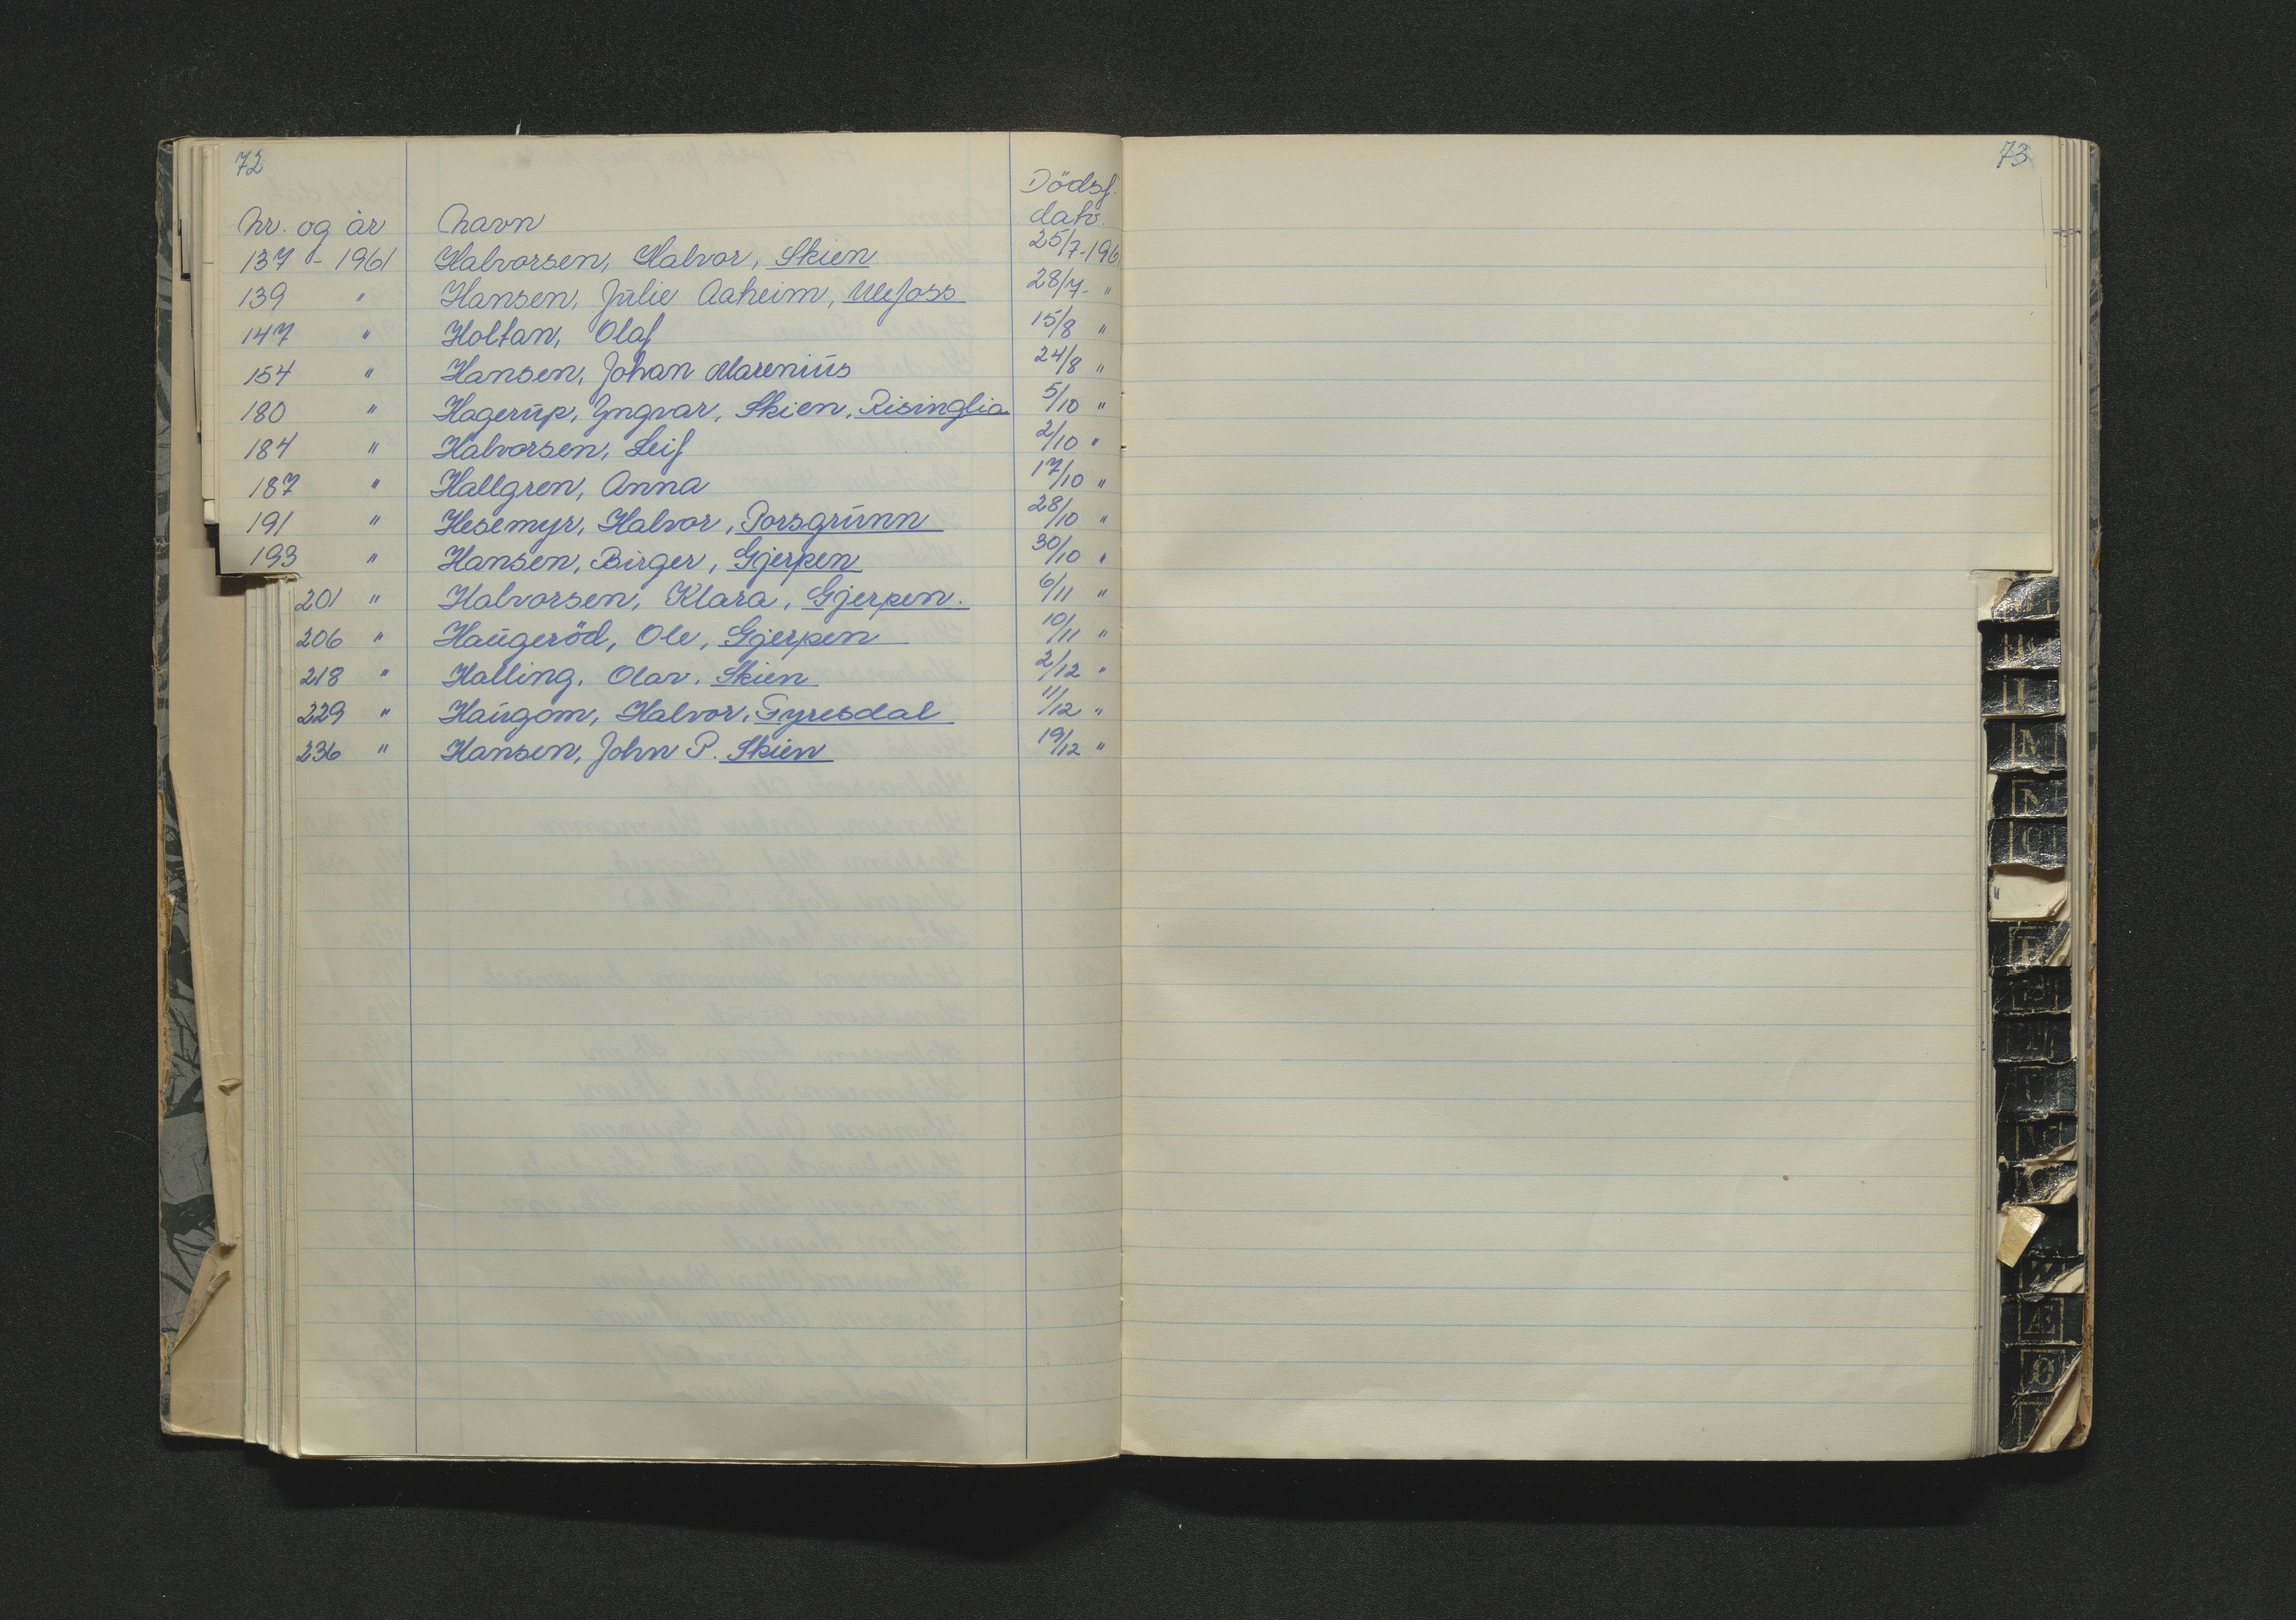 72
73
Dödsf.
Nr. og år Navn dato.
137 - 1961 Halvorsen, Halvor, Skien 25/7-196
139 " Hansen, Julie Aaheim, Ulefoss 28/7- "
147 " Holtan, Olaf 15/8 "
154 " Hansen, Johan Marenius 24/8 "
180 " Hagerup, Yngvar, Skien, Risinglia 5/10 "
184 " Halvorsen, Leif 2/10 "
187 " Hallgren, Anna 17/10 "
191 " Hesemyr, Halvor, Porsgrunn 28/10 "
193 " Hansen, Birger, Gjerpen 30/10 "
201 " Halvorsen, Klara, Gjerpen. 6/11 "
206 " Haugeröd, Ole, Gjerpen 10/11 "
218 " Halling, Olav, Skien 2/12 "
229 " Haugom, Halvor, Fyresdal 11/12 "
236 " Hansen, John P. Skien 19/12 "
M
N
Æ
Ø